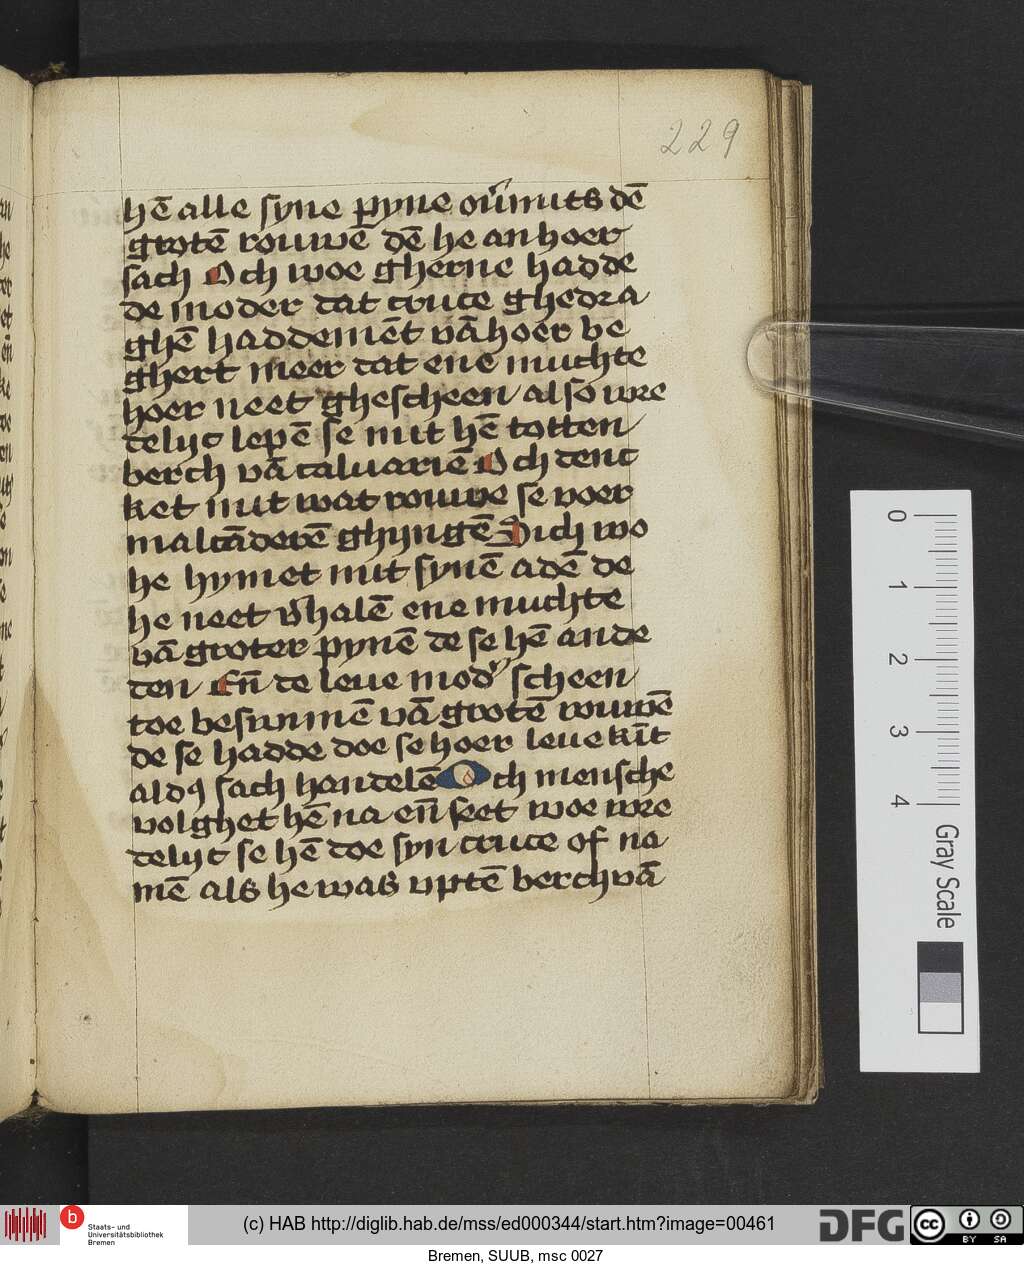 229
hē alle syne pyne ou̓mits dē
grotē rouwē dē he an hoer
sach Och woe gherne hadde
de moder dat cruce ghedra
ghē haddemēt vā hoer be
ghert meer dat ene muchte
hoer neet ghescheen also wre
delijc lepē se mit hē totten
berch vā caluariē Och denc
ket mit wat rouwe se voer
malcāderē ghijngē Sich wo
he hymet mit synē adē de
he neet v̓halē ene muchte
vā groter pynē de se hē ande
den Eñ de leue mod̓ scheen
toe beswimē vā grotē rouwē
de se hadde doe se hoer leue kīt
aldꝰ sach handelē Och mensche
volghet hē na eñ seet woe wre
delijc se hē toe syn cruce of na
mē als he was vptē berch vā
0
1
2
3
4
Gray Scale
b
Staats- und
Universitätsbibliothek
Bremen
(c) HAB http://diglib.hab.de/mss/ed000344/start.htm?image=00461
DFG
cc
BY SA
Bremen, SUUB, msc 0027